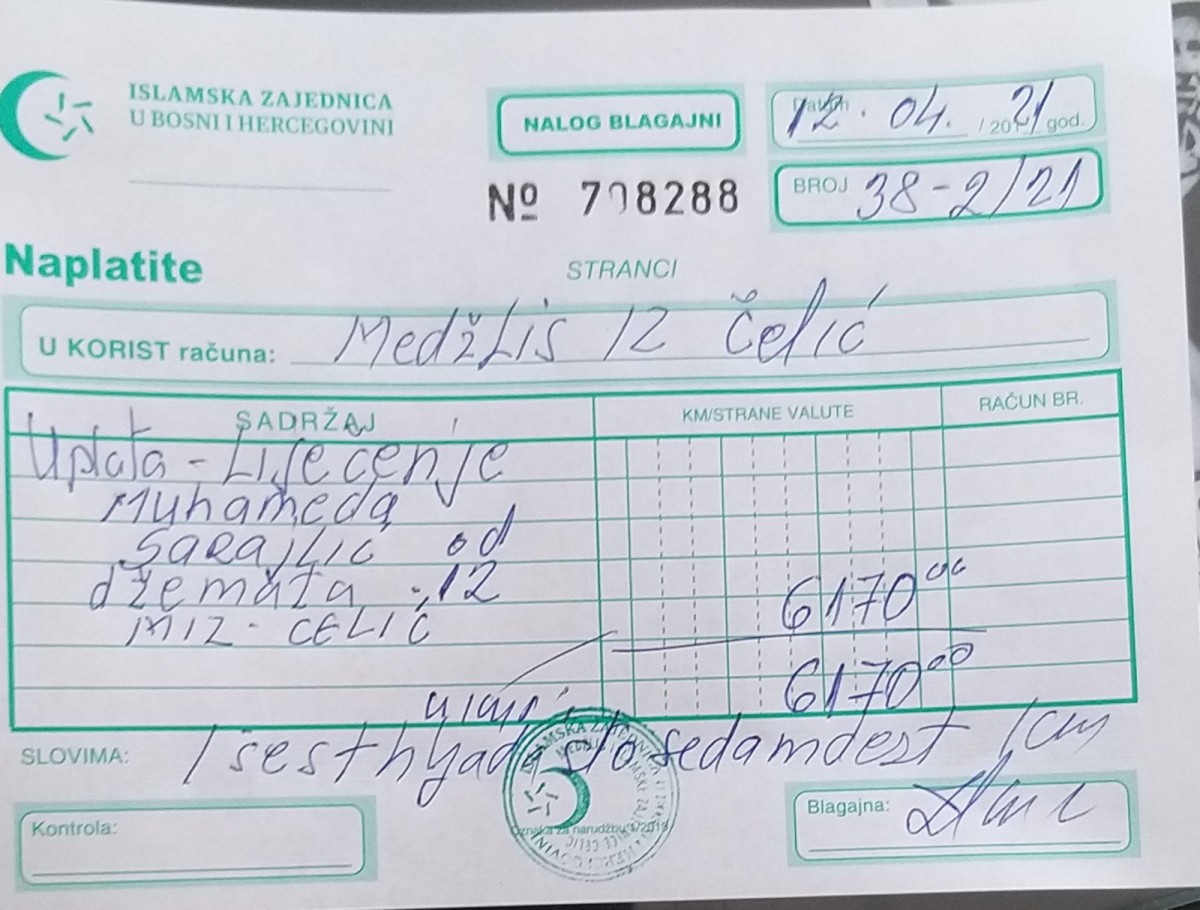 ISLAMSKA ZAJEDNICA
U BOSNI I HERCEGOVINI
NALOG BLAGAJNI
Datum 12. 04. / 20 21 god.
Nº 708288
BROJ 38-2/21
Naplatite
STRANCI
U KORIST računa: Medžlis IZ Čelić
SADRŽAJ KM/STRANE VALUTE RAČUN BR.
Uplata - Liječenje
Muhameda
Sarajlić od
džemata iz
MIZ-Čelić 6170 00
6170 00
SLOVIMA: / šesthiljada sto sedamdest km
Kontrola:
Blagajna:
ISLAMSKA ZAJEDNICA
Oznaka za narudžbu: 1/2019